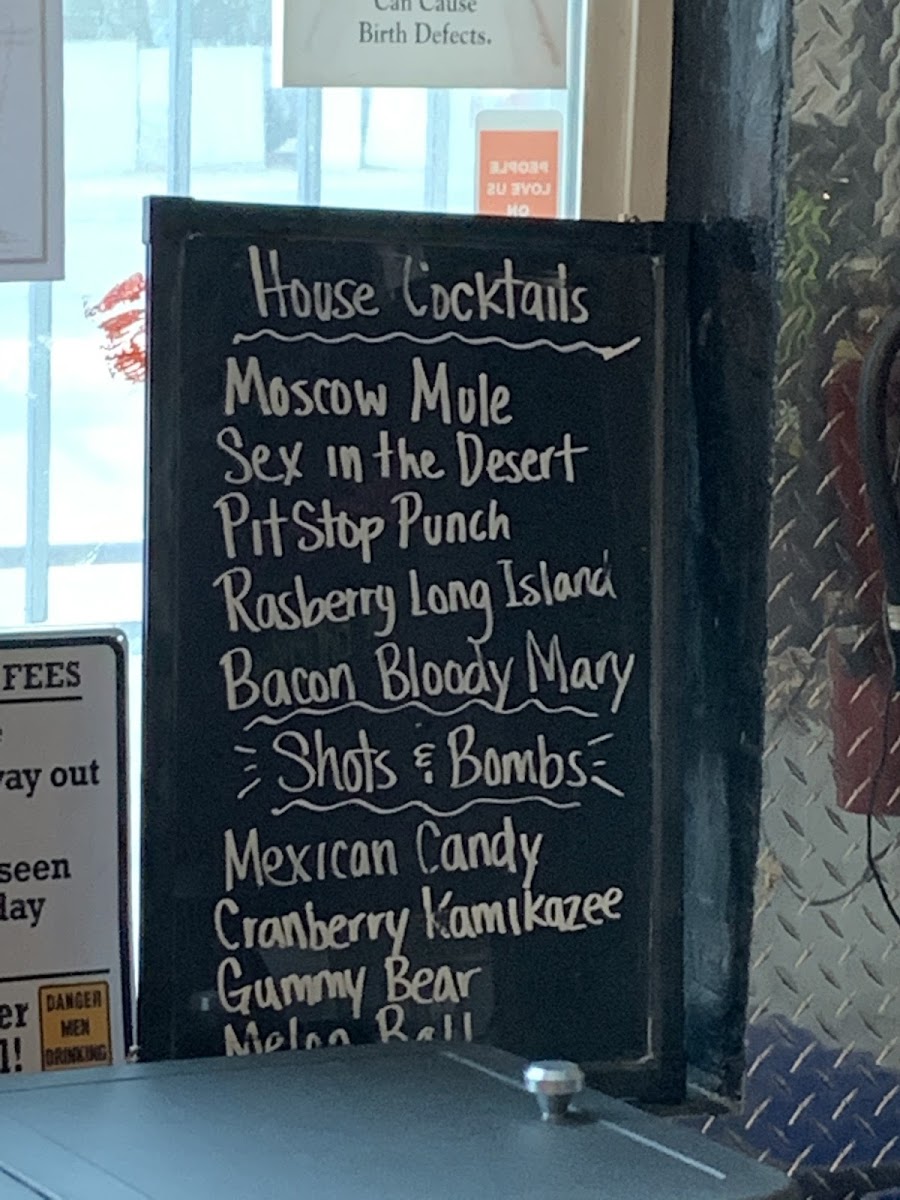 Can Cause
Birth Defects.
PEOPLE
LOVE US
ON
House Cocktails
Moscow Mule
Sex in the Desert
Pit Stop Punch
Rasberry Long Island
Bacon Bloody Mary
Shots & Bombs
Mexican Candy
Cranberry Kamikazee
Gummy Bear
Melon Ball
FEES
out
seen
DANGER
MEN
DRINKING